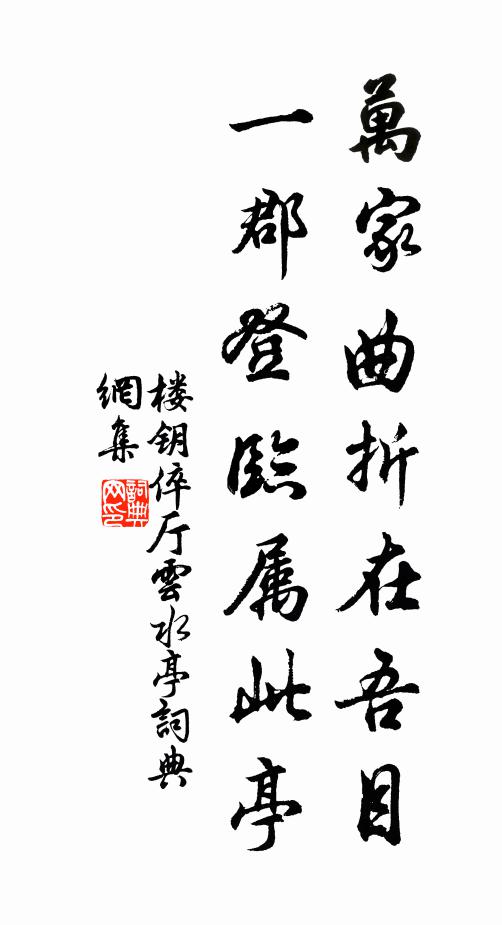 萬家曲折在吾目
一郡登臨属此亭
楼钥倅厅雲水亭詞典
網集
詞典
网印